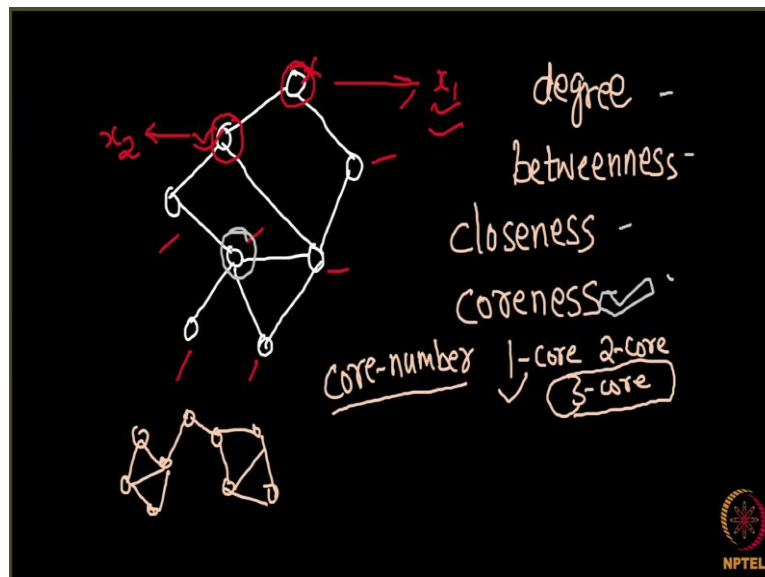 x₁
x₂
degree -
betweenness -
closeness -
coreness ✓
core-number
1-core 2-core
3-core
NPTEL